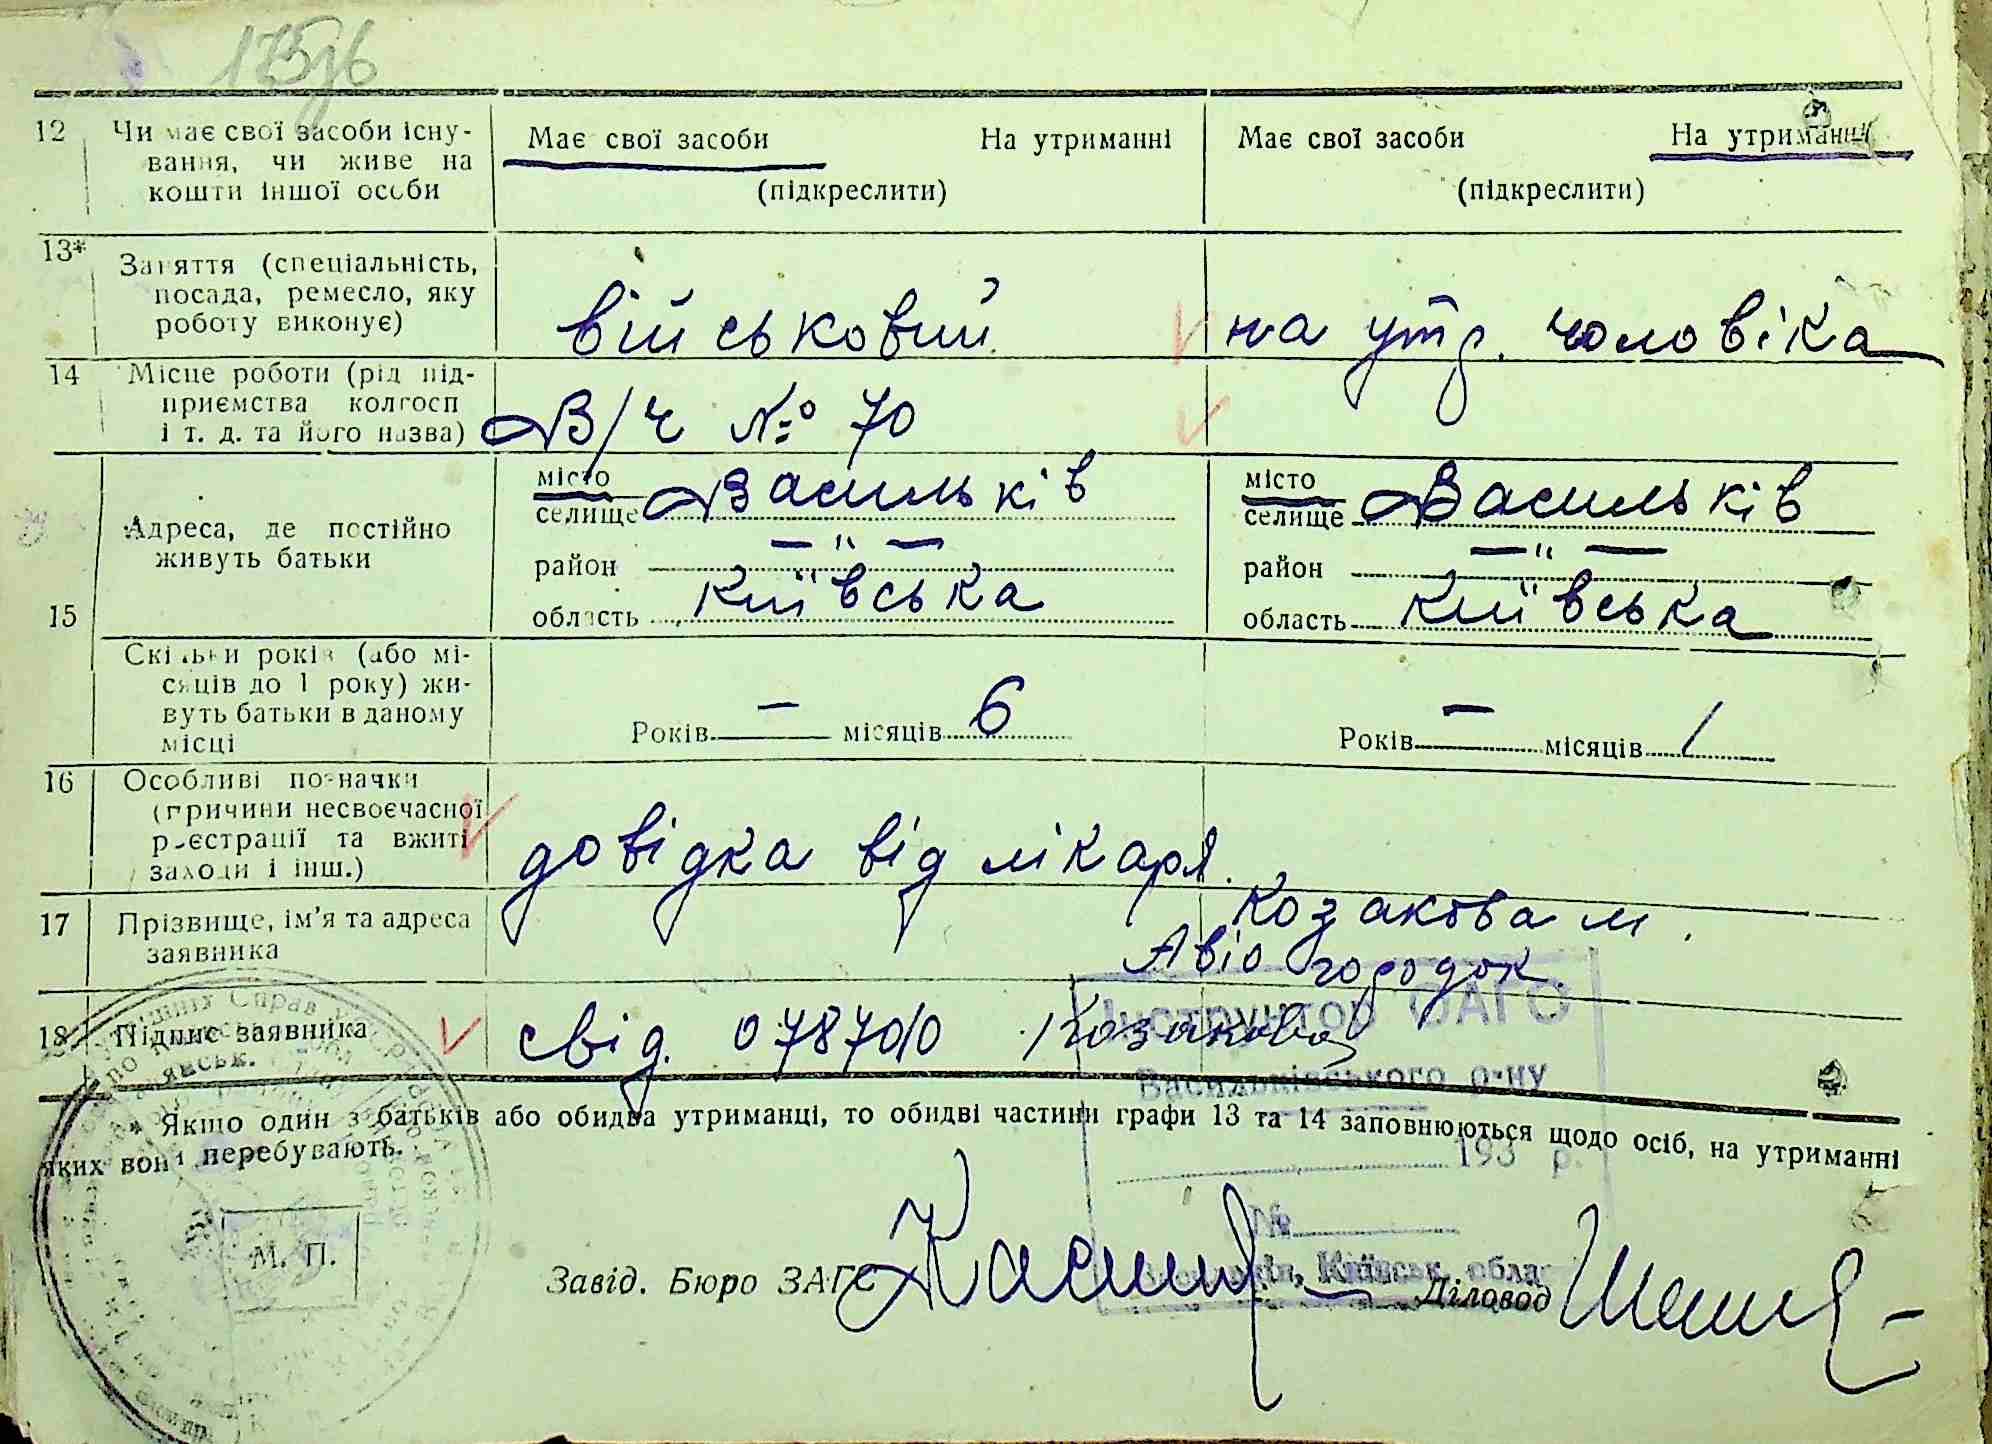 175зв
12 Чи має свої засоби існу-
вання, чи живе на
кошти іншої особи
Має свої засоби На утриманні
(підкреслити)
Має свої засоби На утриманні
(підкреслити)
13* Заняття (спеціальність,
посада, ремесло, яку
роботу виконує)
військовий
на утр. чоловіка
14 Місце роботи (рід під-
приємства колгосп
і т. д. та його назва)
В/ч № 70
15 Адреса, де постійно
живуть батьки
місто
селище Васильків
район — " —
область Київська
місто
селище Васильків
район — " —
область Київська
Скільки років (або мі-
сяців до 1 року) жи-
вуть батьки в даному
місці
Років — місяців 6
Років — місяців 1
16 Особливі позначки
(причини несвоєчасної
реєстрації та вжиті
заходи і інш.)
довідка від лікаря.
17 Прізвище, ім'я та адреса
заявника
Козакова м.
Авіо городок
18 Підпис заявника
свід. 078700 Козакова
Інструктор ОАГС
Васильківського р-ну
193 р.
№
Київськ. обла
* Якщо один з батьків або обидва утриманці, то обидві частини графи 13 та 14 заповнюються щодо осіб, на утриманні
яких вони перебувають.
М. П.
Завід. Бюро ЗАГС
Діловод